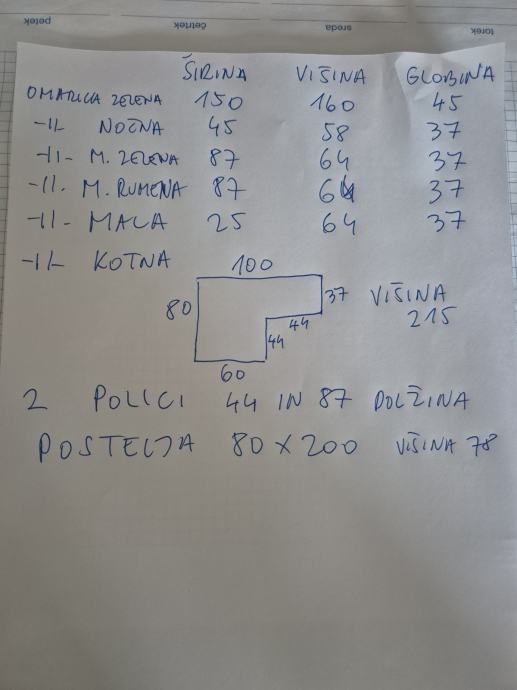 petek četrtek sreda torek
ŠIRINA VIŠINA GLOBINA
OMARICA ZELENA 150 160 45
-II- NOČNA 45 58 37
-II- M. ZELENA 87 64 37
-II- M. RUMENA 87 64 37
-II- MALA 25 64 37
-II- KOTNA
100
80 37 VIŠINA
44 215
44
60
2 POLICI 44 IN 87 DOLŽINA
POSTELJA 80 X 200 VIŠINA 78